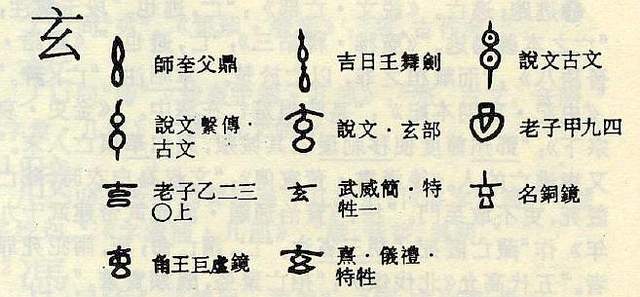 玄
師𡘇父鼎
吉日壬舞劍
說文古文
說文繫傳·
古文
說文·玄部
老子甲九四
老子乙二三
〇上
武威簡·特
牲一
名銅鏡
角王巨虛鏡
熹·儀禮·
特牲